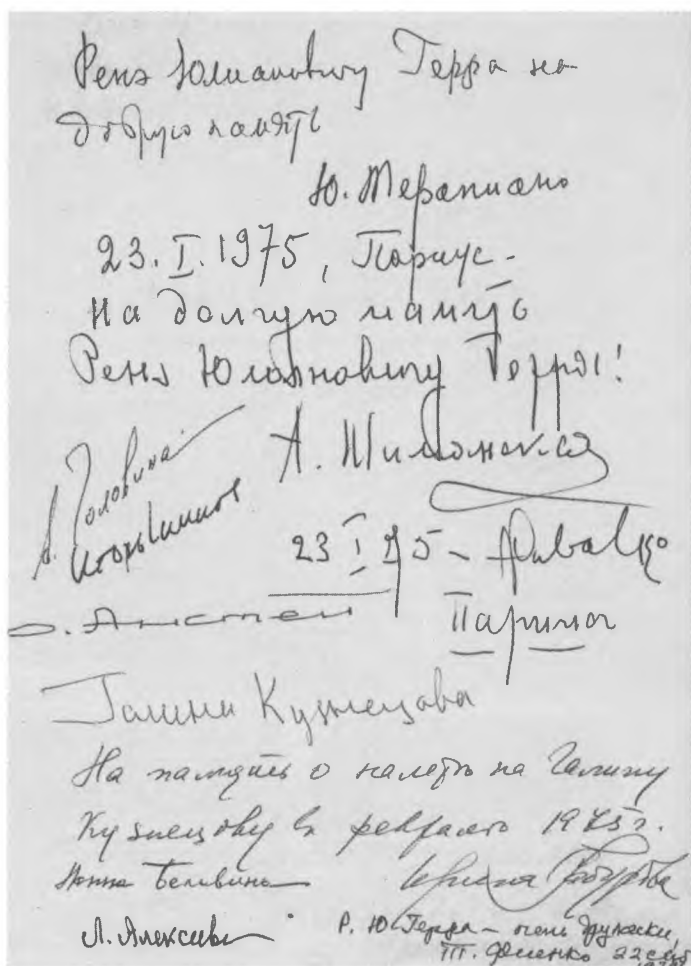 Ренэ Юлиановичу Герра на
добрую память
Ю. Терапиано
23.I.1975, Париж.
На долгую память
Ренэ Юлиановичу Герра!
А. Шиманская
Половина
Игорь Чиннов
23 I 75 –
О. Анстей
Париж
Галина Кузнецова
На память о налетѣ на Галину
Кузнецову в февралѣ 1975 г.
Нонна Белавина
Л. Алексеева
Р. Ю. Герра – очень дружески,
Т. Фесенко 22